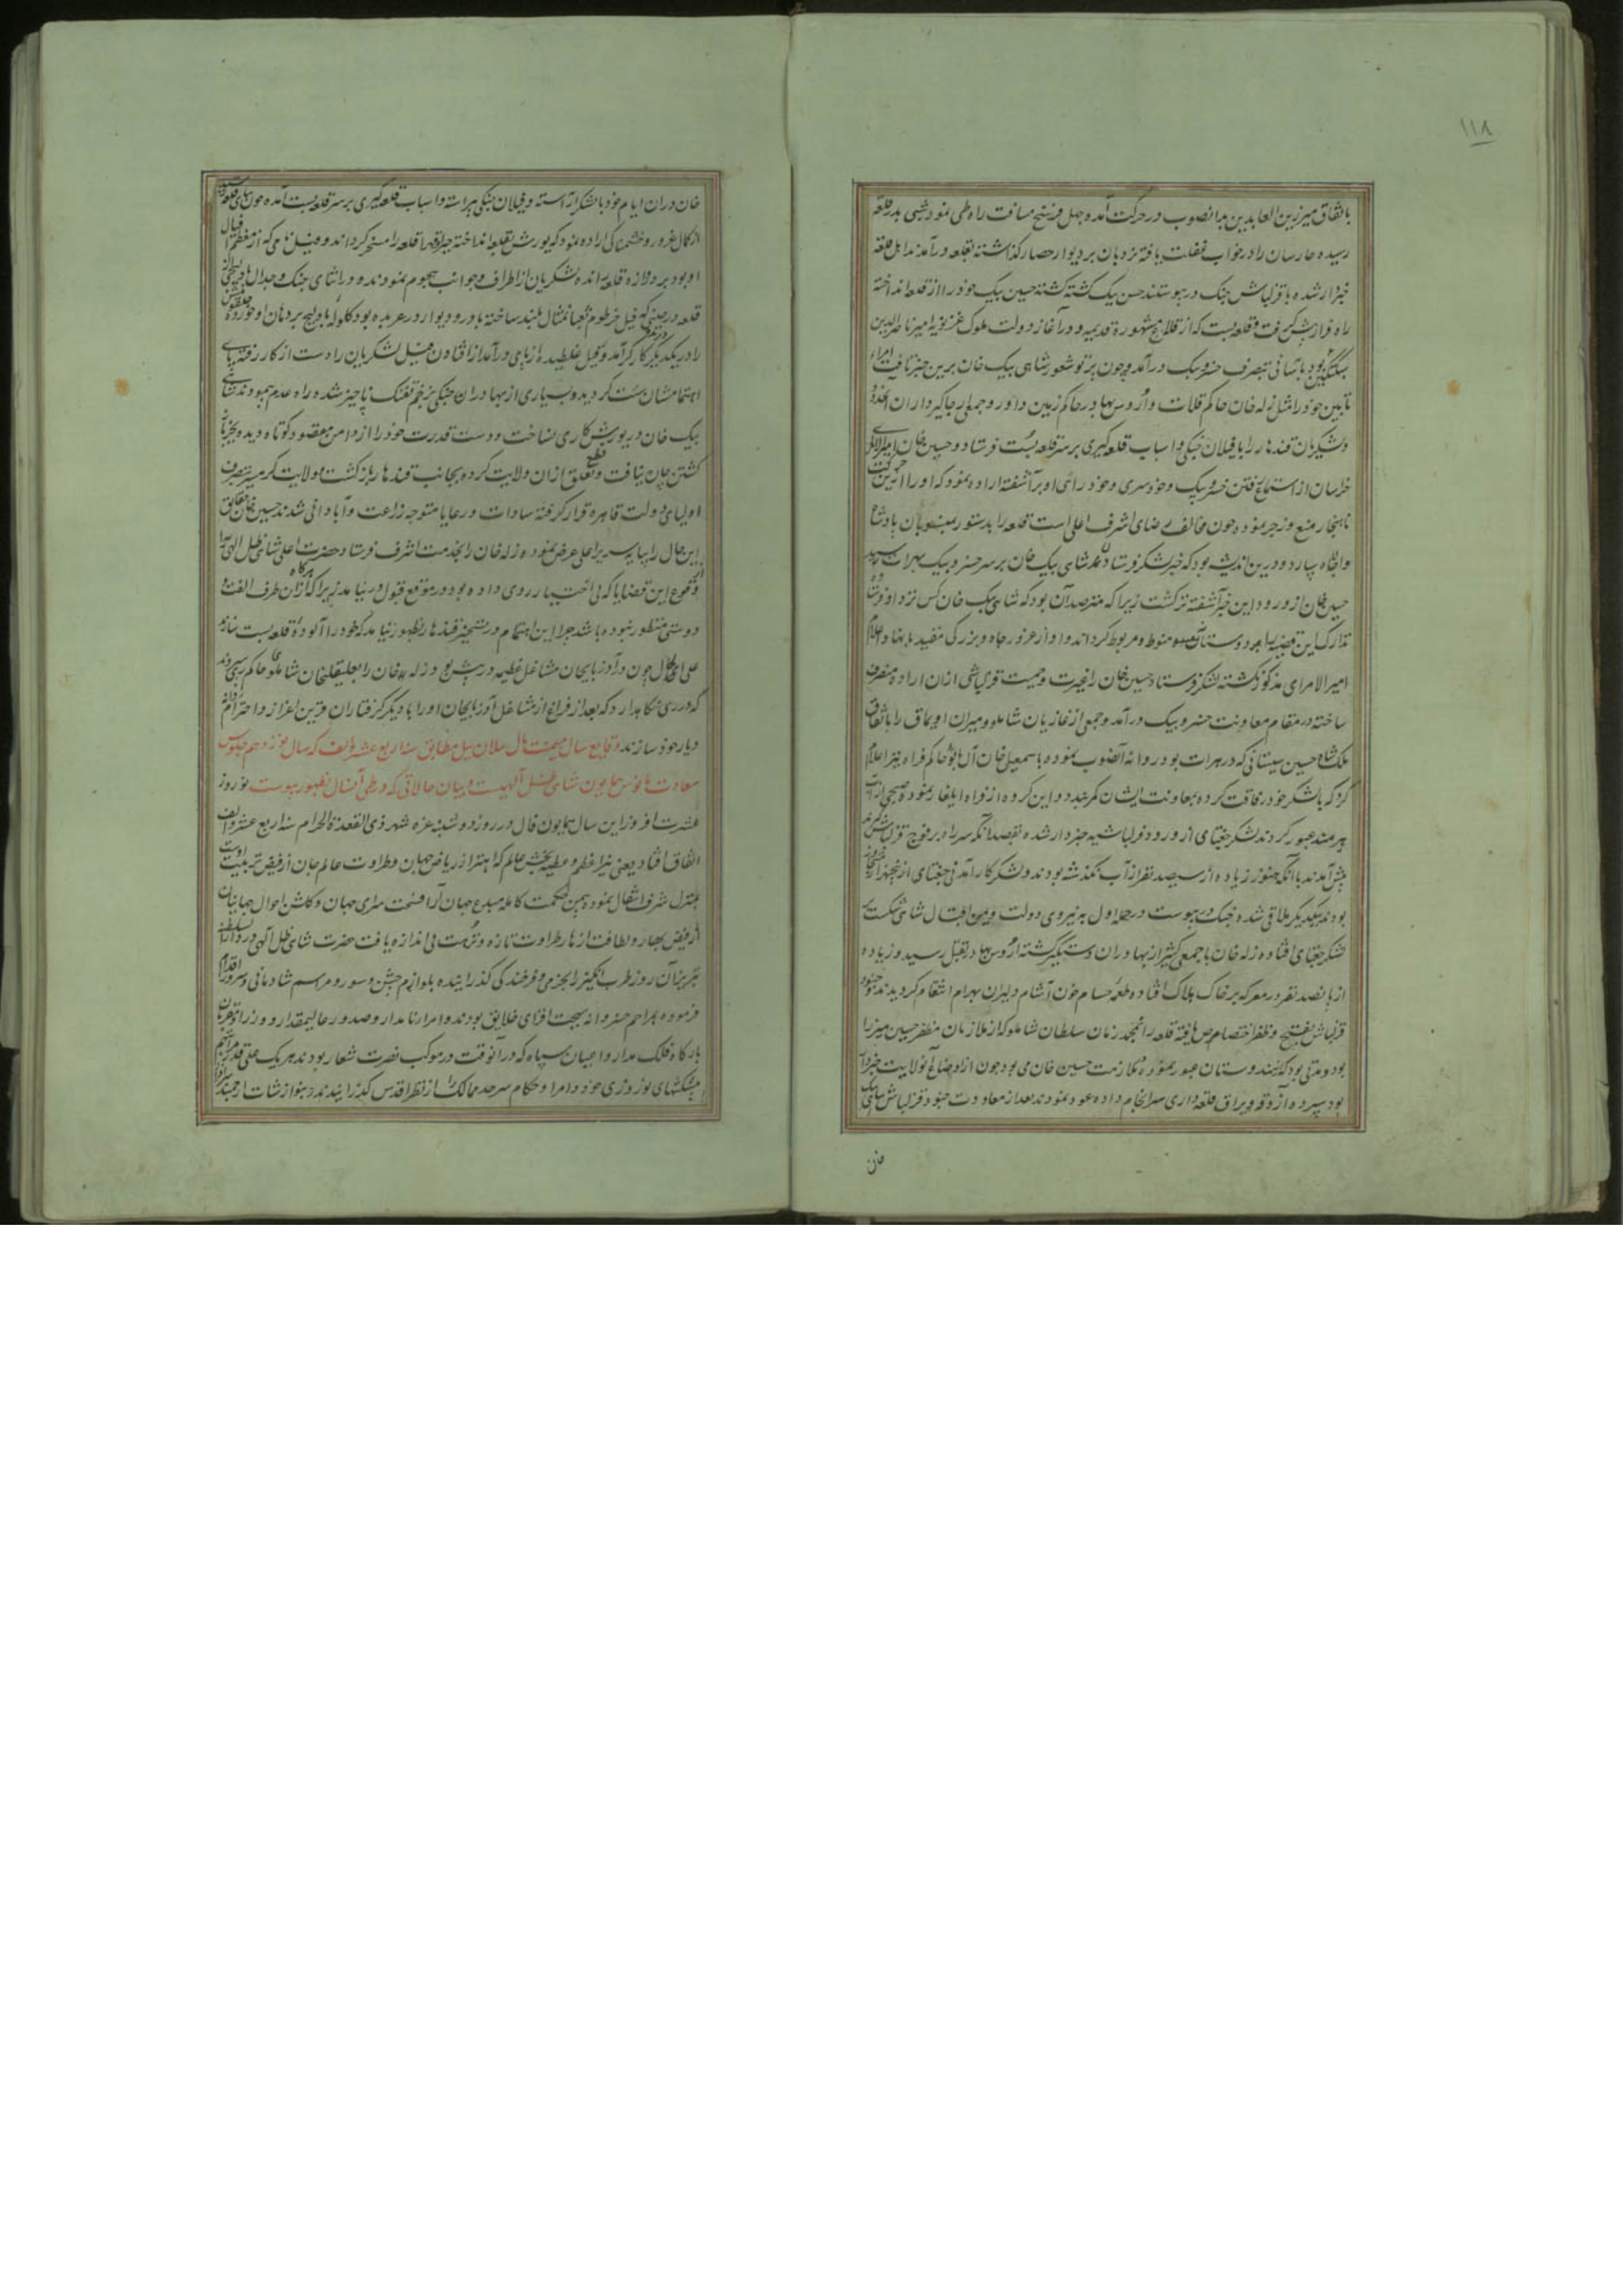 ۱۱۸
باتفاق میر زین العابدین بدانصوب در حرکت آمده چهل فرسخ مسافت راه طی نمود شبی بدر قلعه
رسیده حارسان را در خواب غفلت یافته نردبان بر دیوار حصار گذاشته بقلعه درآمدند اهل قلعه
خبردار شده با قزلباش جنگ در پیوستند حسن بیک کشته گشته حسین بیک خود را از قلعه انداخته
راه فرار پیش گرفت و قلعه بست که از قلاع مشهوره قدیمه و در آغاز دولت ملوک غزنویه امیر ناصرالدین
سبکتکین بود بآسانی بتصرف خسرو بیک درآمد و چون پرتو شعور شاهی بیک خان برین خبر تافت امراء
تابین خود را مثل زله خان حاکم قلات و اروس بهادر حاکم زمین داور و جمعی از جاگیرداران
و لشکریان قندهار را با فیلان جنگی و اسباب قلعه گیری بر سر قلعه بست فرستاد و حسین خان امیر الامرای
خراسان از استماع رفتن خسرو بیک و خودسری و خودرائی او برآشفته اراده نمود که او را ازین حرکت
ناهنجار منع و زجر نموده چون مخالف رضای اشرف اعلی است قلعه را بدستور بمنسوبان پادشاه
والاجاه سپارد و درین اندیشه بود که خبر لشکر فرستادن شاهی بیک خان بر سر خسرو بیک بهرات رسید
حسین خان از ورود این خبر آشفته تر گشت زیرا که مترصد آن بود که شاهی بیک خان کس نزد او فرستاده
تدارک این قضیه را بامر دوستانه منوط و مربوط گرداند و او از غرور جاه و بزرگی مقید باینها و اعلام
امیر الامرای مذکور نگشته لشکر فرستاد حسین خان را غیرت و حمیت قزلباشی ازان اراده منصرف
ساخته در مقام معاونت خسرو بیک درآمد و جمعی از غازیان شاملو و میران اویماق را باتفاق
ملک شاه حسین سیستانی که در هرات بود روانه آنصوب نموده باسمعیل خان حاکم فراه نیز اعلام
کرد که با لشکر خود رفاقت کرده بمعاونت ایشان کمر بندد و این گروه از فراه ایلغار نموده صبحی از آب
هیرمند عبور کردند لشکر جغتای از ورود قزلباشیه خبردار شده بقصد آنکه سر راه بر فوج قزلباش گیرند
پیش آمدند با آنکه هنوز زیاده از سیصد نفر از آب نگذشته بودند و لشکر کارآمدنی جغتای از پنجهزار متجاوز
بودند بیکدیگر ملاقی شده جنگ در پیوست در حمله اول به نیروی دولت و یمن اقبال شاهی شکست بر
لشکر جغتای افتاده زله خان با جمعی کثیر از بهادران دستگیر گشته اروس بهادر بقتل رسید و زیاده
از پانصد نفر در معرکه بر خاک هلاک افتاده طعمه حسام خون آشام دلیران بهرام انتقام گردیدند جنود
قزلباش بفتح و ظفر اختصاص یافته قلعه را بمحمد زمان سلطان شاملو که از ملازمان مظفر حسین میرزا
بود و مدتی بود که بهندوستان عبور نموده بملازمت حسین خان می بود چون از اوضاع آنولایت خبردار
بود سپرده آزوقه و یراق قلعه داری سرانجام داده عود نمودند بعد از معاودت جنود قزلباش شاهی بیک
خان
خان دران ایام خود با لشکر آراسته و فیلان جنگی پیراسته و اسباب قلعه گیری بر سر قلعه بست آمده چون بپای قلعه رسید
از کمال غرور و خشمناکی اراده نمود که یورش بقلعه انداخته جبراً قهراً قلعه را مسخر گرداند و فیل نامی که از معظم افیال
او بود بر دروازه قلعه رانده لشکریان از اطراف و جوانب هجوم نمودند و در اثنای جنگ و جدال
قلعه در حینی که فیل خرطوم ثعبان مثال بلند ساخته با در و دیوار در عربده بود گلوله بادلیج بر دهان او خورده
را در یکدیگر کارگر آمد و فیل غلطیده از پای درآمد از افتادن فیل لشکریان را دست از کار رفته پای
اهتمامشان سست گردید و بسیاری از بهادران جنگی بزخم تفنگ ناچیز شده راه عدم پیمودند شاهی
بیک خان در یورش کاری نساخت و دست قدرت خود را از دامن مقصود کوتاه دیده بجز باز
گشتن چاره نیافت و قطع تعلق ازان ولایت کرده بجانب قندهار بازگشت و ولایت گرمسیر بتصرف
اولیای دولت قاهره قرار گرفته سادات و رعایا متوجه زراعت و آبادانی شدند حسین خان حقایق
این حال را بپایه سریر اعلی عرض نموده زله خان را بخدمت اشرف فرستاد حضرت اعلی شاهی ظل الهی را
وقوع این قضایا که بی اختیار روی داده بود در موقع قبول در نیامد زیرا که هرگاه ازان طرف الفت و
دوستی منظور نبوده باشد چرا این اهتمام در تسخیر قندهار بظهور نیامد که خود را آلوده قلعه بست سازند
علی ای حال چون در آذربایجان مشاغل عظیمه در پیش بود زله خان را بعلیقلیخان شاملو حاکم ری سپردند
که در ری نگاهدارد که بعد از فراغ از مشاغل آذربایجان او را با دیگر گرفتاران قرین اعزاز و احترام روانه
دیار خود سازند وقایع سال میمنت مآل ییلان ییل مطابق سنه اربع عشر و الف که سال نوزدهم جلوس
سعادت مانوس همایون شاهی ظل الهیست و بیان حالاتی که در طی آنسال بظهور پیوست نوروز
عشرت افروز این سال همایون فال در روز دوشنبه غره شهر ذی القعدة الحرام سنه اربع عشر و الف
اتفاق افتاد یعنی نیر اعظم و عطیه بخش عالم که اهتزاز ریاض جهان و طراوت عالم جان از فیض تربیت اوست
بمنزل شرف انتقال نموده بیمن حکمت کامله مبدع جهان آرا فسحت سرای جهان و گلشن احوال جهانیان
از فیض بهار و لطافت ازهار طراوت تازه و نزهت بی اندازه یافت حضرت شاهی ظل الهی در دارالسلطنه
تبریز آن روز طرب انگیز را بخرمی و فرخندگی گذرانیده بلوازم جشن و سور و مراسم شادمانی و سرور اقدام
فرموده بمراحم خسروانه بهجت افزای خلایق بودند و امرا نامدار و صدور عالیمقدار و وزرا و مقربان
بارگاه فلک مدار و اعیان سپاه که در آنوقت در موکب نصرت شعار بودند هر یک علی قدر مراتبهم
پیشکشهای نوروزی خود و امرا و حکام سرحد ممالک را از نظر اقدس گذرانیدند و بنوازشات ارجمند